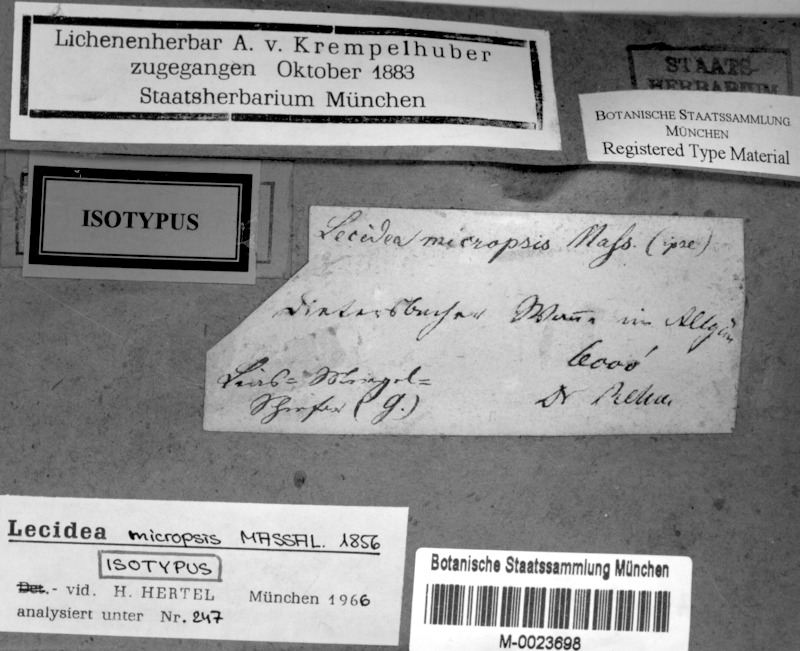 Lichenenherbar A. v. Krempelhuber
zugegangen Oktober 1883
Staatsherbarium München
STAATS-
HERBARIUM
BOTANISCHE STAATSSAMMLUNG
MÜNCHEN
Registered Type Material
ISOTYPUS
Lecidea micropsis Mass. (ipse)
Dietersbacher Wanne im Allgäu
6000'
Lias-Mergel-
Schiefer (g.)
Dr Rehm
Lecidea micropsis MASSAL. 1856
ISOTYPUS
Det.- vid. H. HERTEL München 1966
analysiert unter Nr. 247
Botanische Staatssammlung München
M-0023698